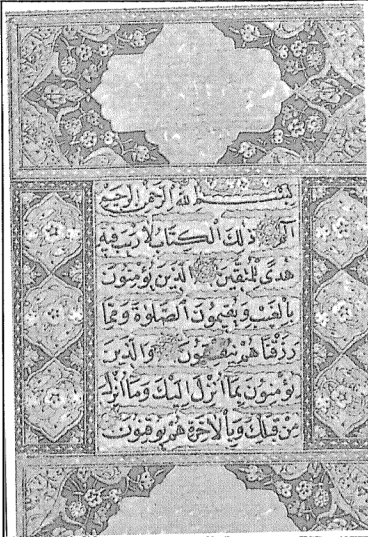 بسم الله الرحمن الرحيم
الم ذلك الكتاب لا ريب فيه
هدى للمتقين الذين يؤمنون
بالغيب ويقيمون الصلوة ومما
رزقناهم ينفقون والذين
يؤمنون بما أنزل إليك وما أنزل
من قبلك وبالآخرة هم يوقنون